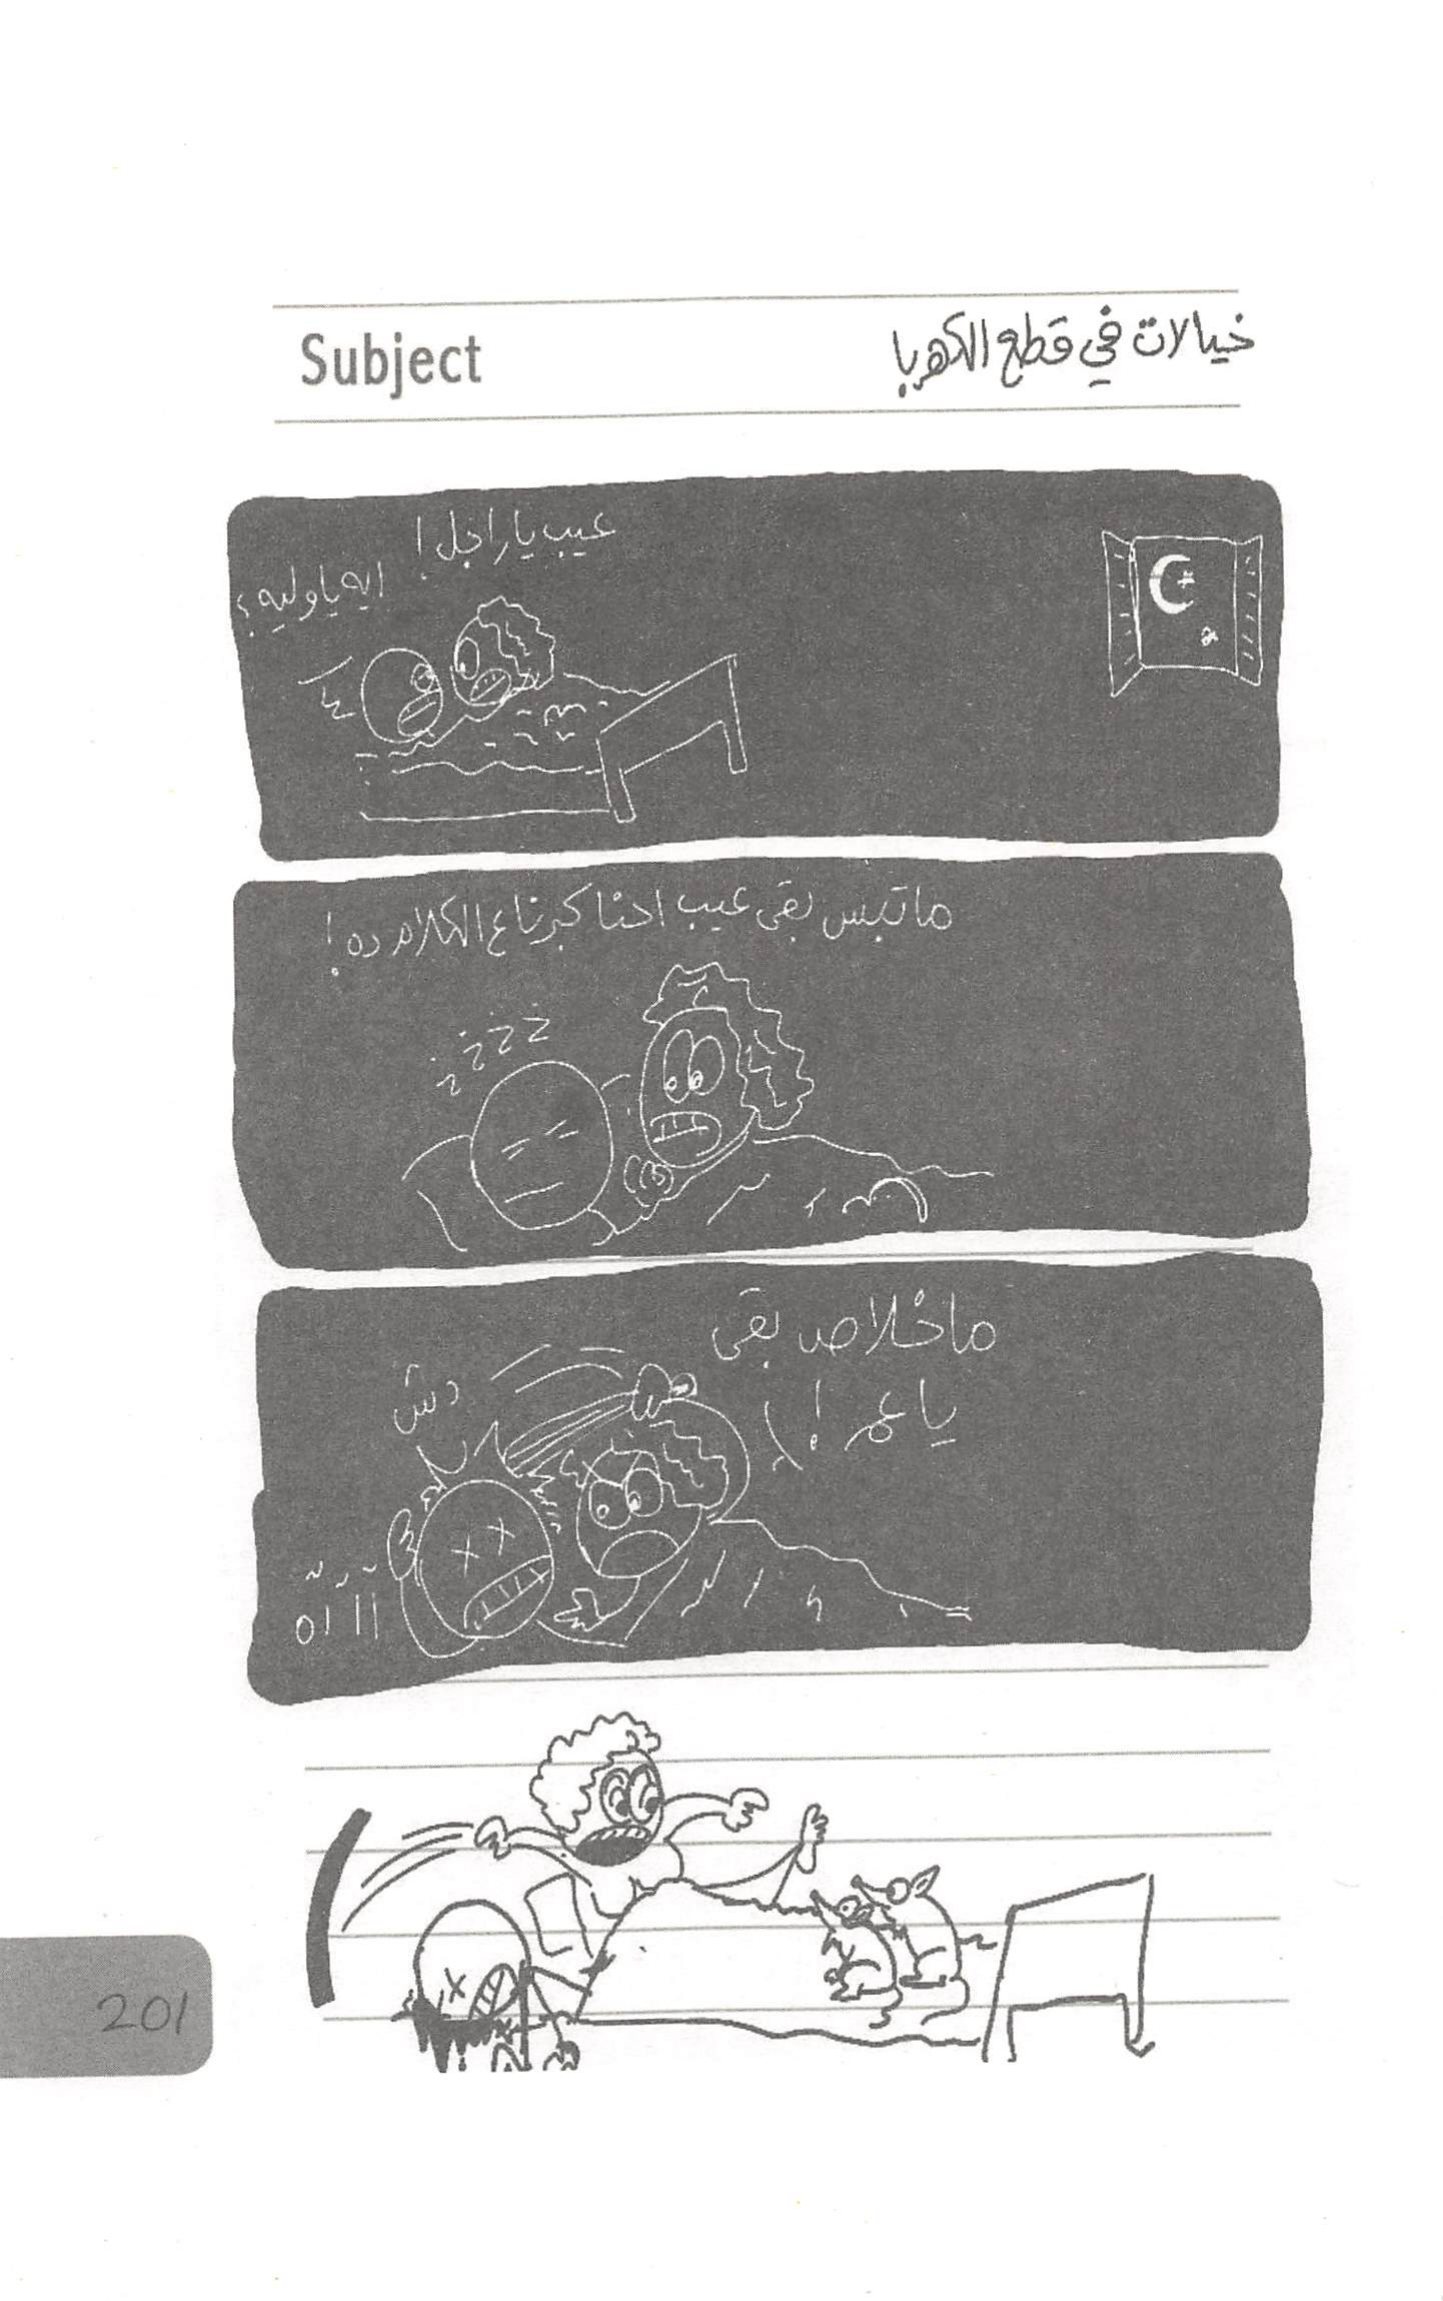 Subject
خيالات في قطع الكهربا
عيب يا راجل!
ايه يا وليه؟
ما تبس بقى عيب احنا كبرنا ع الكلام ده!
zzzz
ما خلاص بقى
يا عم!
دش
آآآه
201